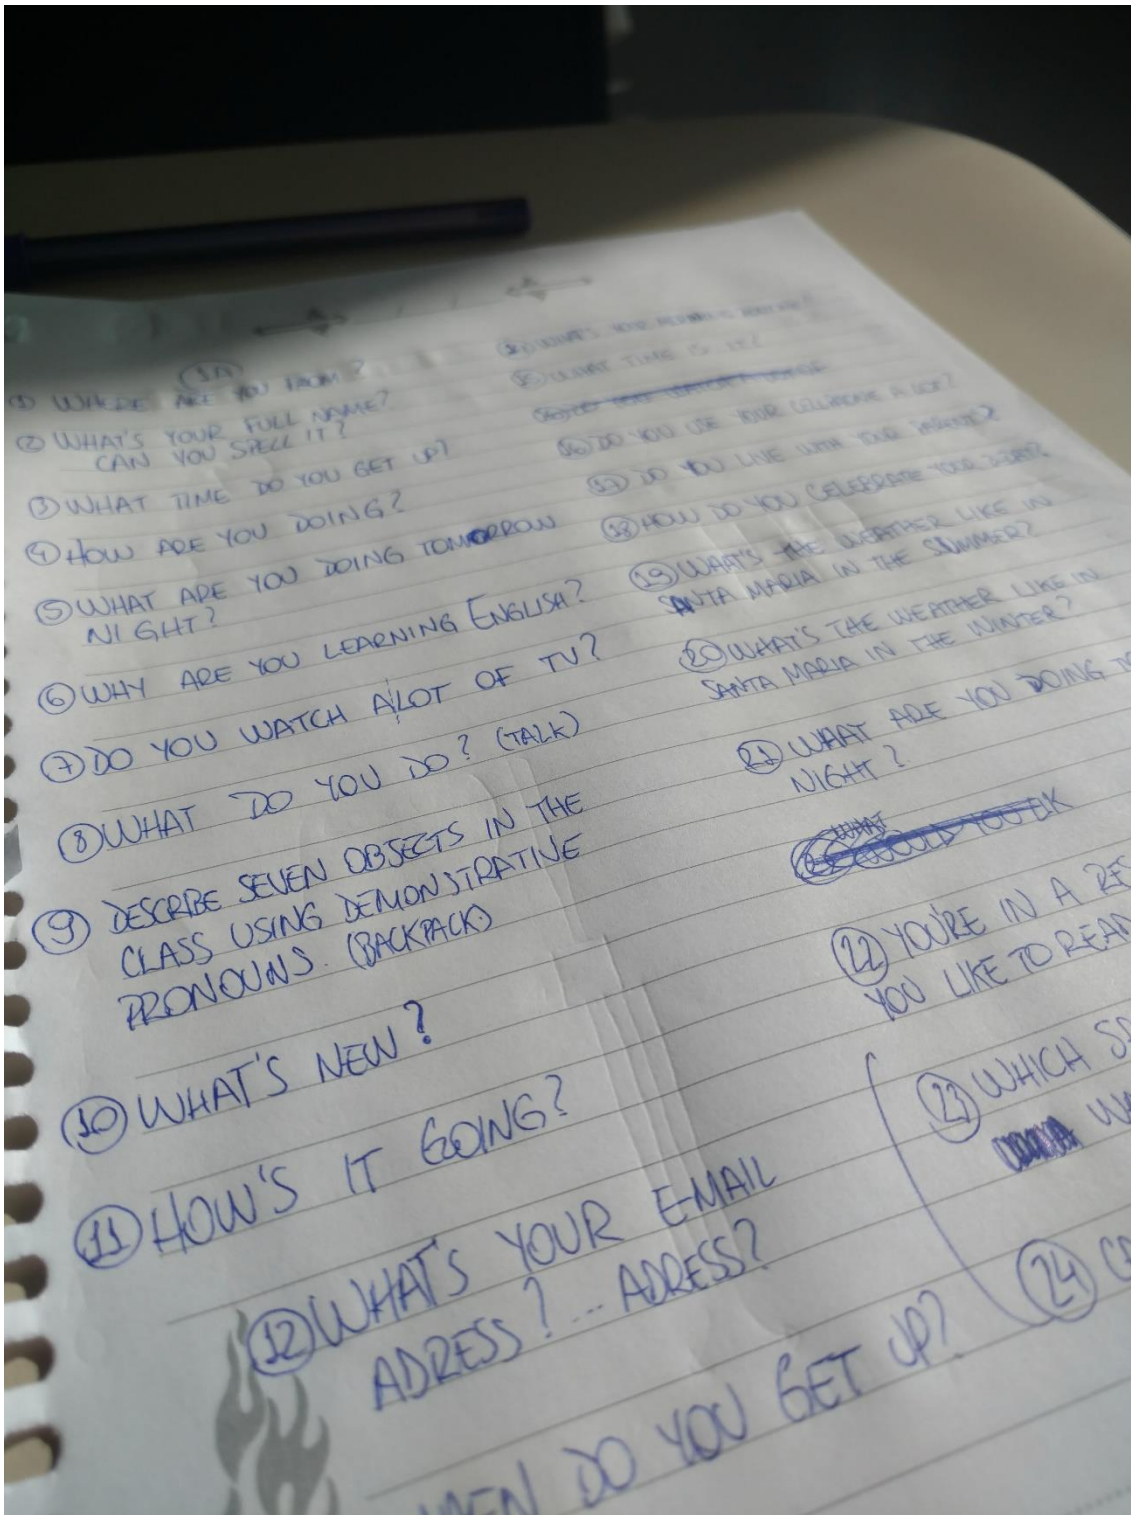 1A
① WHERE ARE YOU FROM?
② WHAT'S YOUR FULL NAME?
CAN YOU SPELL IT?
③ WHAT TIME DO YOU GET UP?
④ HOW ARE YOU DOING?
⑤ WHAT ARE YOU DOING TOMORROW
NIGHT?
⑥ WHY ARE YOU LEARNING ENGLISH?
⑦ DO YOU WATCH A LOT OF TV?
⑧ WHAT DO YOU DO? (TALK)
⑨ DESCRIBE SEVEN OBJECTS IN THE
CLASS USING DEMONSTRATIVE
PRONOUNS. (BACKPACK)
⑩ WHAT'S NEW?
⑪ HOW'S IT GOING?
⑫ WHAT'S YOUR E-MAIL
ADRESS? ... ADRESS?
DO YOU GET UP?
WHAT'S YOUR
⑮ WHAT TIME IS IT?
⑯ DO YOU USE YOUR CELLPHONE A LOT?
⑰ DO YOU LIVE WITH YOUR PARENTS?
⑱ HOW DO YOU CELEBRATE YOUR B-DAY?
⑲ WHAT'S THE WEATHER LIKE IN
SANTA MARIA IN THE SUMMER?
⑳ WHAT'S THE WEATHER LIKE IN
SANTA MARIA IN THE WINTER?
㉑ WHAT ARE YOU DOING
NIGHT?
WHAT
WOULD YOU
㉒ YOU'RE IN A
YOU LIKE TO
㉓ WHICH
㉔